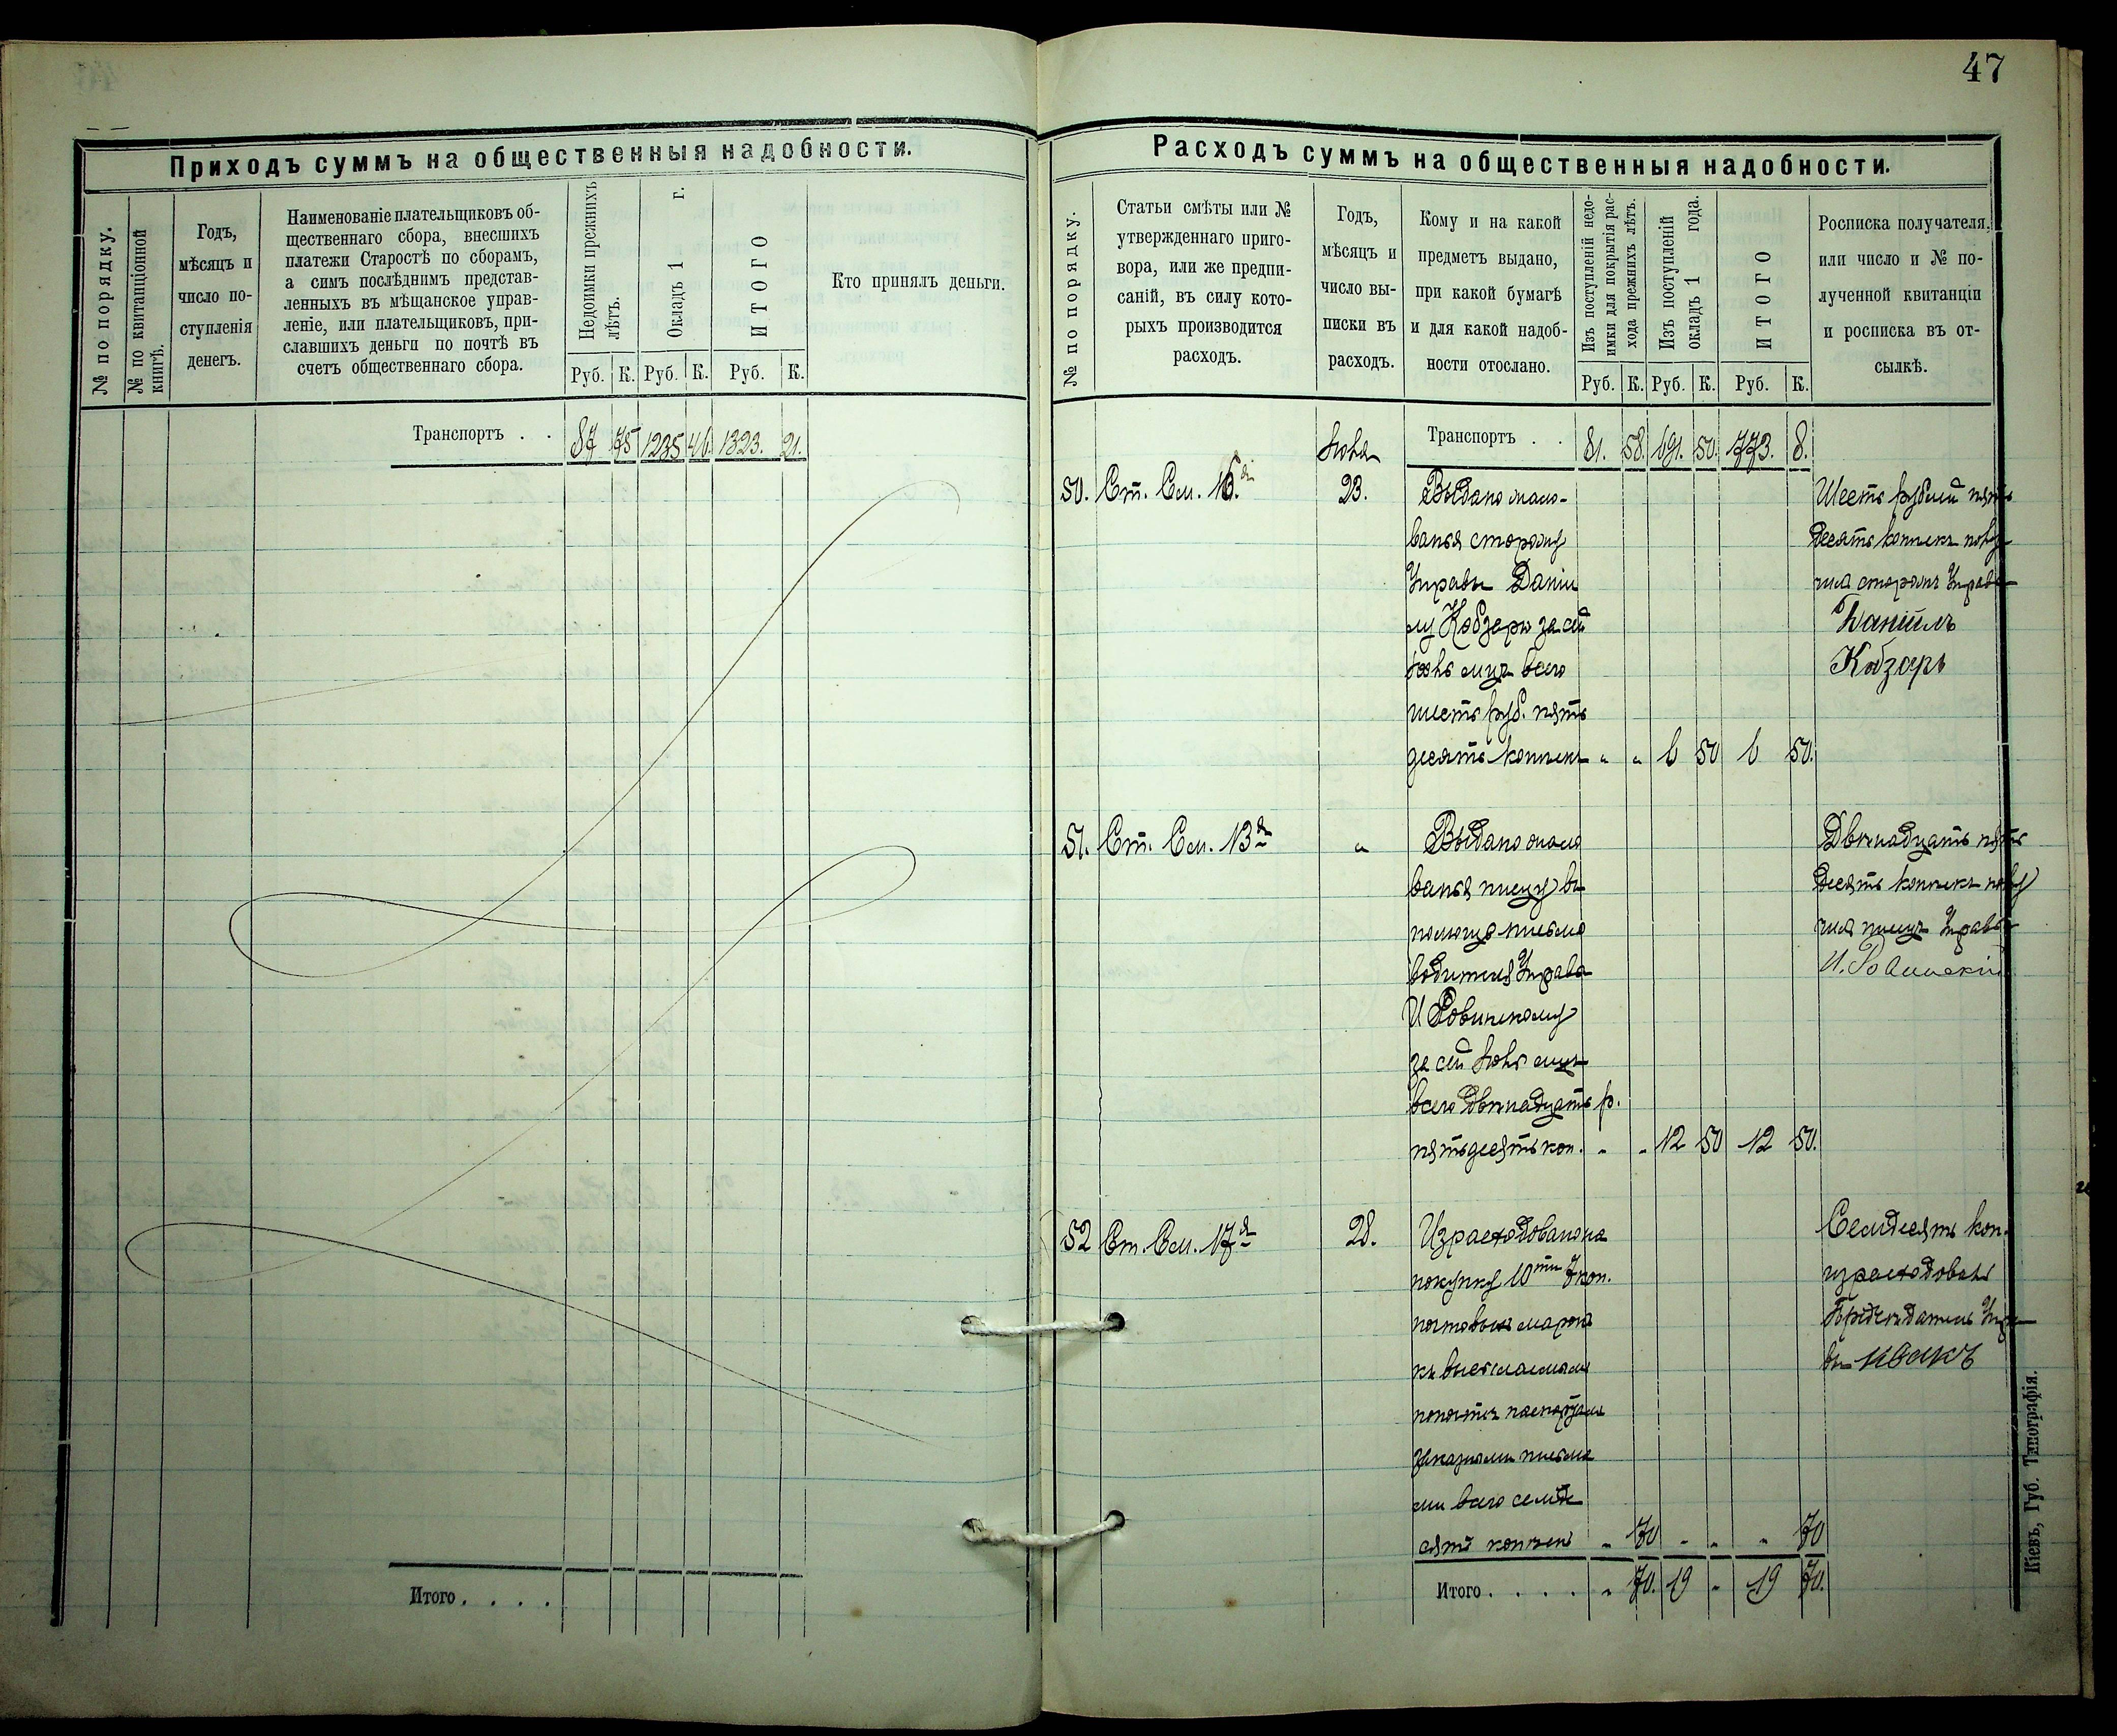 47
Приходъ суммъ на общественныя надобности.
№ по порядку.
№ по квитанціонной
книгѣ.
Годъ,
мѣсяцъ и
число по-
ступленія
денегъ.
Наименованіе плательщиковъ об-
щественнаго сбора, внесшихъ
платежи Старостѣ по сборамъ,
а симъ послѣднимъ представ-
ленныхъ въ мѣщанское управ-
леніе, или плательщиковъ, при-
славшихъ деньги по почтѣ въ
счетъ общественнаго сбора.
Недоимки прежнихъ
лѣтъ.
Окладъ 1 г.
ИТОГО
Руб. К. Руб. К. Руб. К.
Кто принялъ деньги.
Транспортъ . . 87 75 1235 46 1323. 21.
Итого . . . .
Расходъ суммъ на общественныя надобности.
№ по порядку.
Статьи смѣты или №
утвержденнаго приго-
вора, или же предпи-
саній, въ силу кото-
рыхъ производится
расходъ.
Годъ,
мѣсяцъ и
число вы-
писки въ
расходъ.
Кому и на какой
предметъ выдано,
при какой бумагѣ
и для какой надоб-
ности отослано.
Изъ поступленій недо-
имки для покрытія рас-
хода прежнихъ лѣтъ.
Изъ поступленій
окладъ 1 года.
ИТОГО
Руб. К. Руб. К. Руб. К.
Росписка получателя,
или число и № по-
лученной квитанціи
и росписка въ от-
сылкѣ.
Іюня Транспортъ . . 81. 58. 691. 50. 773. 8.
50. Ст. См. 16. 23. Выдано жало-
ванья сторожу
Управы Даніи
лу Кобзарю за сей
Іюнь мцъ всего
шесть руб. пять
десять копѣекъ „ „ 6 50 6 50.
Шесть рублей пять
десять копѣекъ полу
чилъ сторожъ Управы
Даніилъ
Кобзарь
51. Ст. См. 13я „ Выдано жало
ванья писцу въ
помощь письмо
водителя Управы
И Ровинскому
за сей Іюнь мцъ
всего двѣнадцать р.
пятьдесятъ коп. „ „ 12 50 12 50.
Двѣнадцать пять
десять копѣекъ полу
чилъ писецъ Управы
И. Ровинскій
52 Ст. См. 17я 28. Израсходовано на
покупку 10ти 7 коп.
почтовыхъ марокъ
къ высылаемымъ
по почтѣ паспортамъ
заказными письма
ми всего семьде
сятъ копѣекъ „ 70 „ „ „ 70
Семьдесятъ коп.
израсходовалъ
Предсѣдатель Упра
вы
Итого . . . . „ 70. 19 „ 19 70.
Кіевъ, Губ. Типографія.